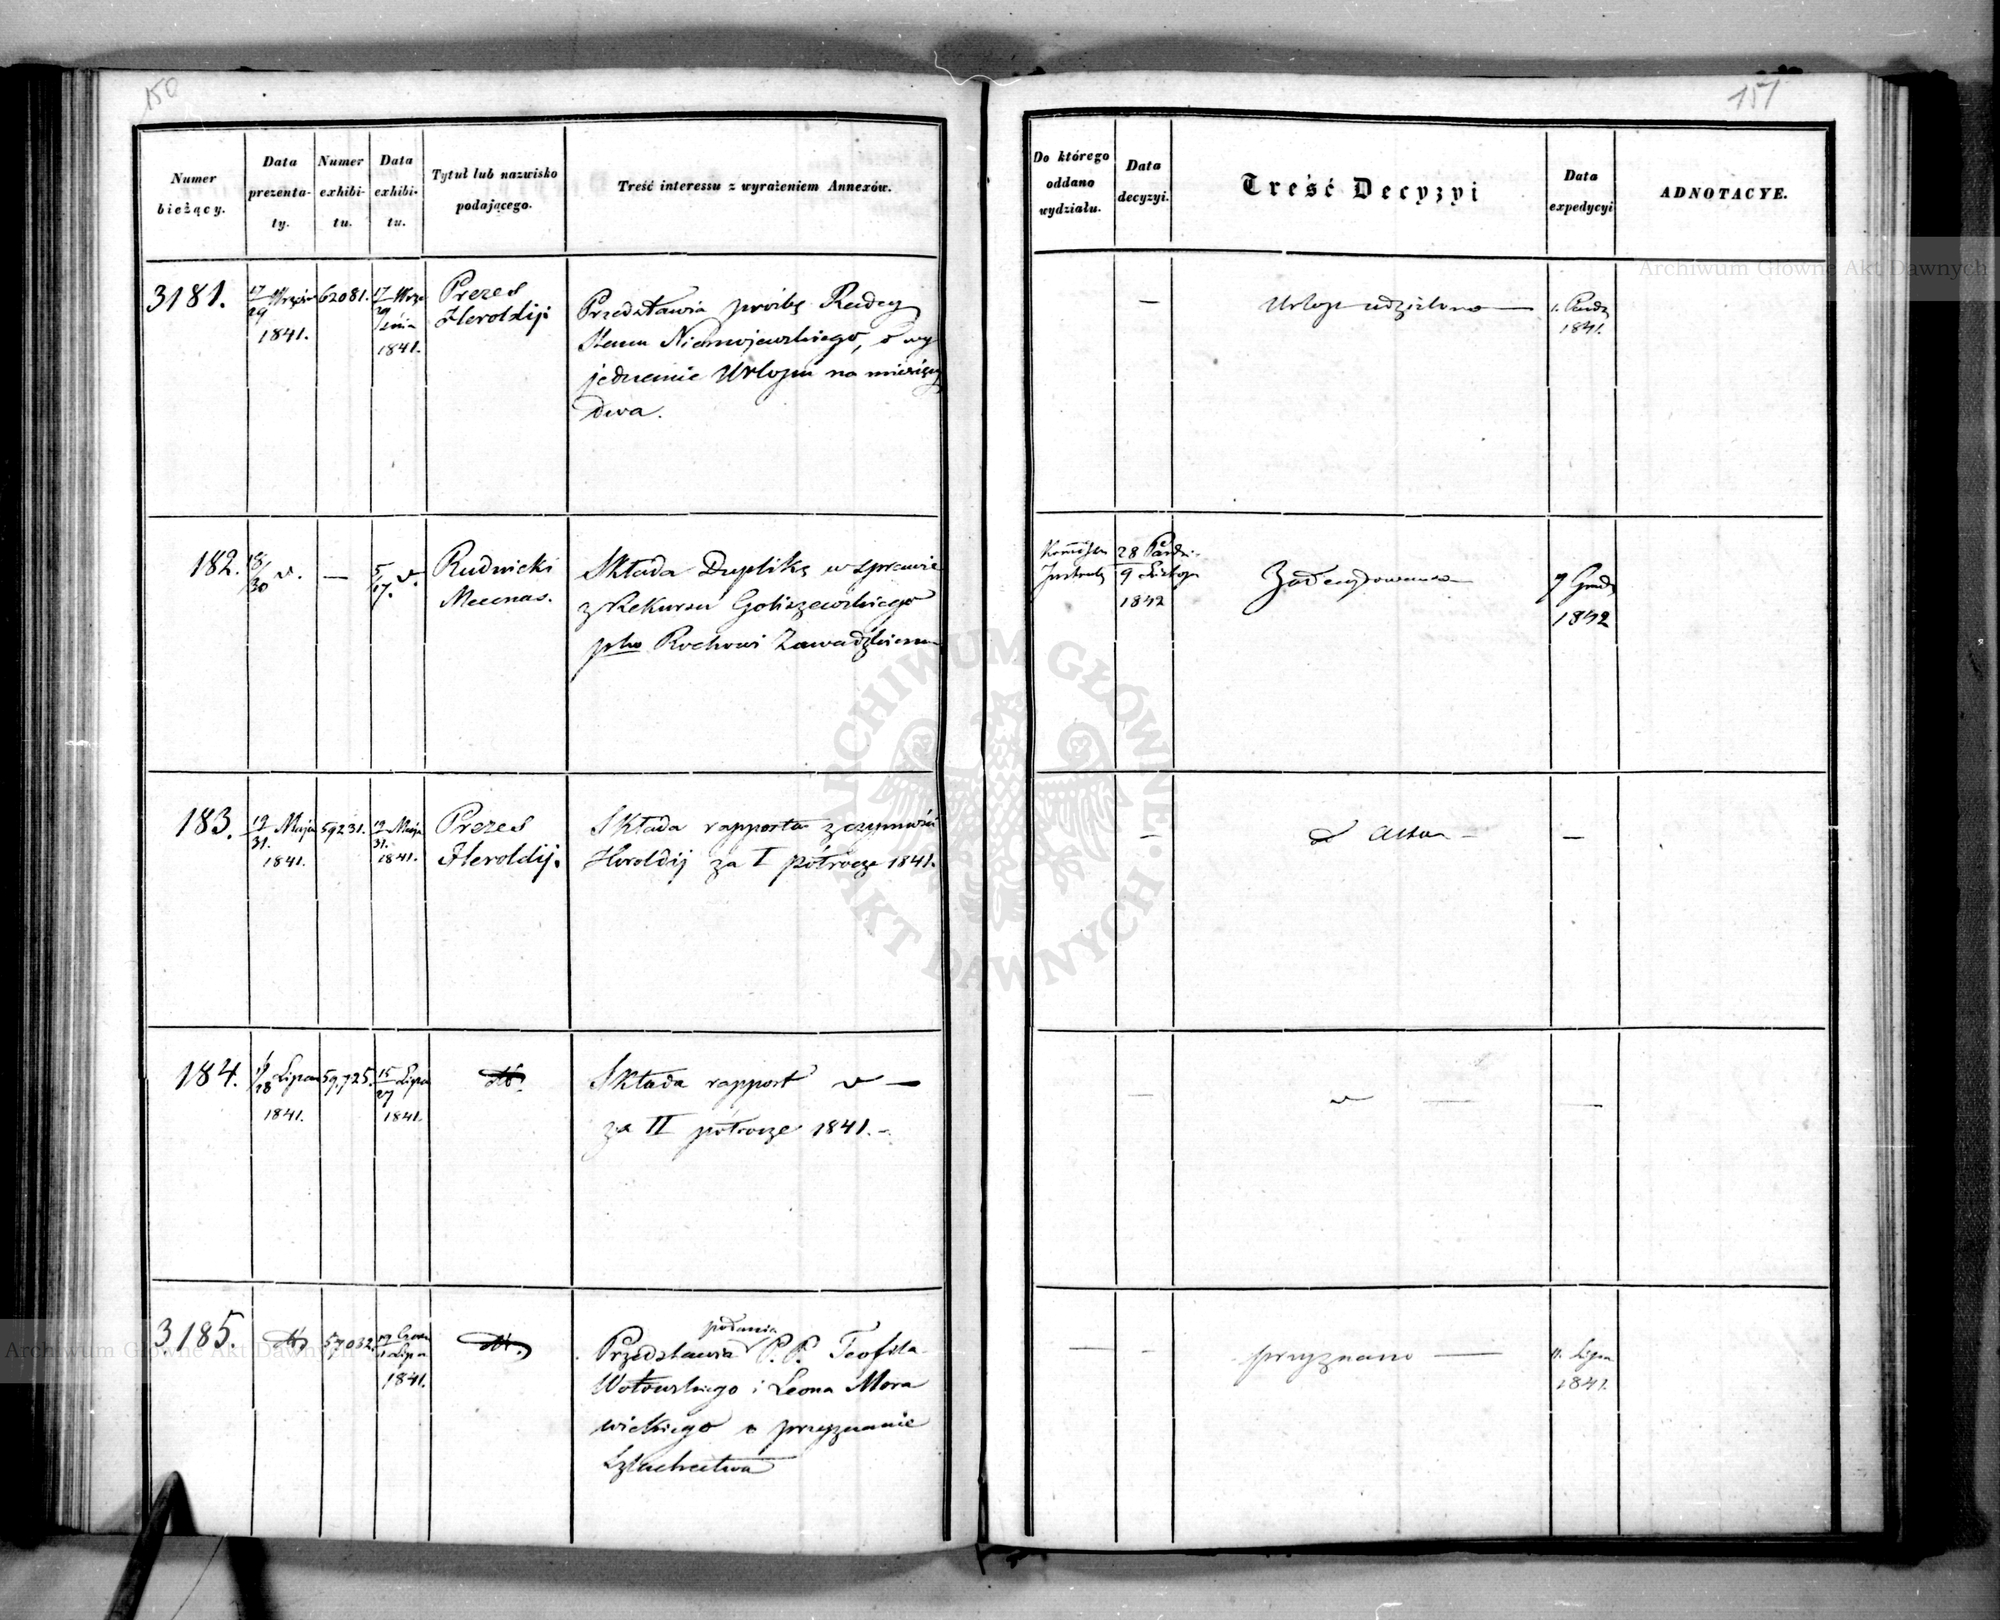 150
Numer
bieżący.
Data
prezenta-
ty.
Numer
exhibi-
tu.
Data
exhibi-
tu.
Tytuł lub nazwisko
podającego.
Treść interessu z wyrażeniem Annexów.
3181.
17/29
1841.
62081.
17/29
1841.
Prezes
Heroldij.
Przedstawia prośbę Radcy
Stanu Niemojewskiego, o wy
jednanie Urlopu na miesięcy
dwa.
182.
18/30 v.
—
5/17. v.
Rudnicki
Mecenas.
Składa Duplikę w sprawie
z Rekursu Goliszewskiego
pko Rochowi Zawadzkiemu
183.
19/31. Maja
1841.
59231.
19/31. Maja
1841.
Prezes
Heroldij.
Składa rapporta z czynności
Heroldij za I półrocze 1841.
184.
16/28 Lipca
1841.
59,725.
15/27 Lipca
1841.
dto.
Składa rapport v —
za II półrocze 1841. -
3185.
dto
57,032.
Lipca
1841.
dto.
podania
Przedstawia P. P. Teofila
Wołowskiego i Leona Mora
wickiego o przyznanie
Szlachectwa
151
Do którego
oddano
wydziału.
Data
decyzyi.
Treść Decyzyi
Data
expedycyi
ADNOTACYE.
—
Urlop udzielono —
1. Paźdz
1841.
28 Paźdz.
9 Listop
1842
Zadecydowana
9 Grud
1842
—
ad Acta —
—
—
v —
—
—
-
przyznano —
11. Lipca
1841.
Archiwum Główne Akt Dawnych
Archiwum Główne Akt Dawnych
ARCHIWUM GŁÓWNE · AKT DAWNYCH ·